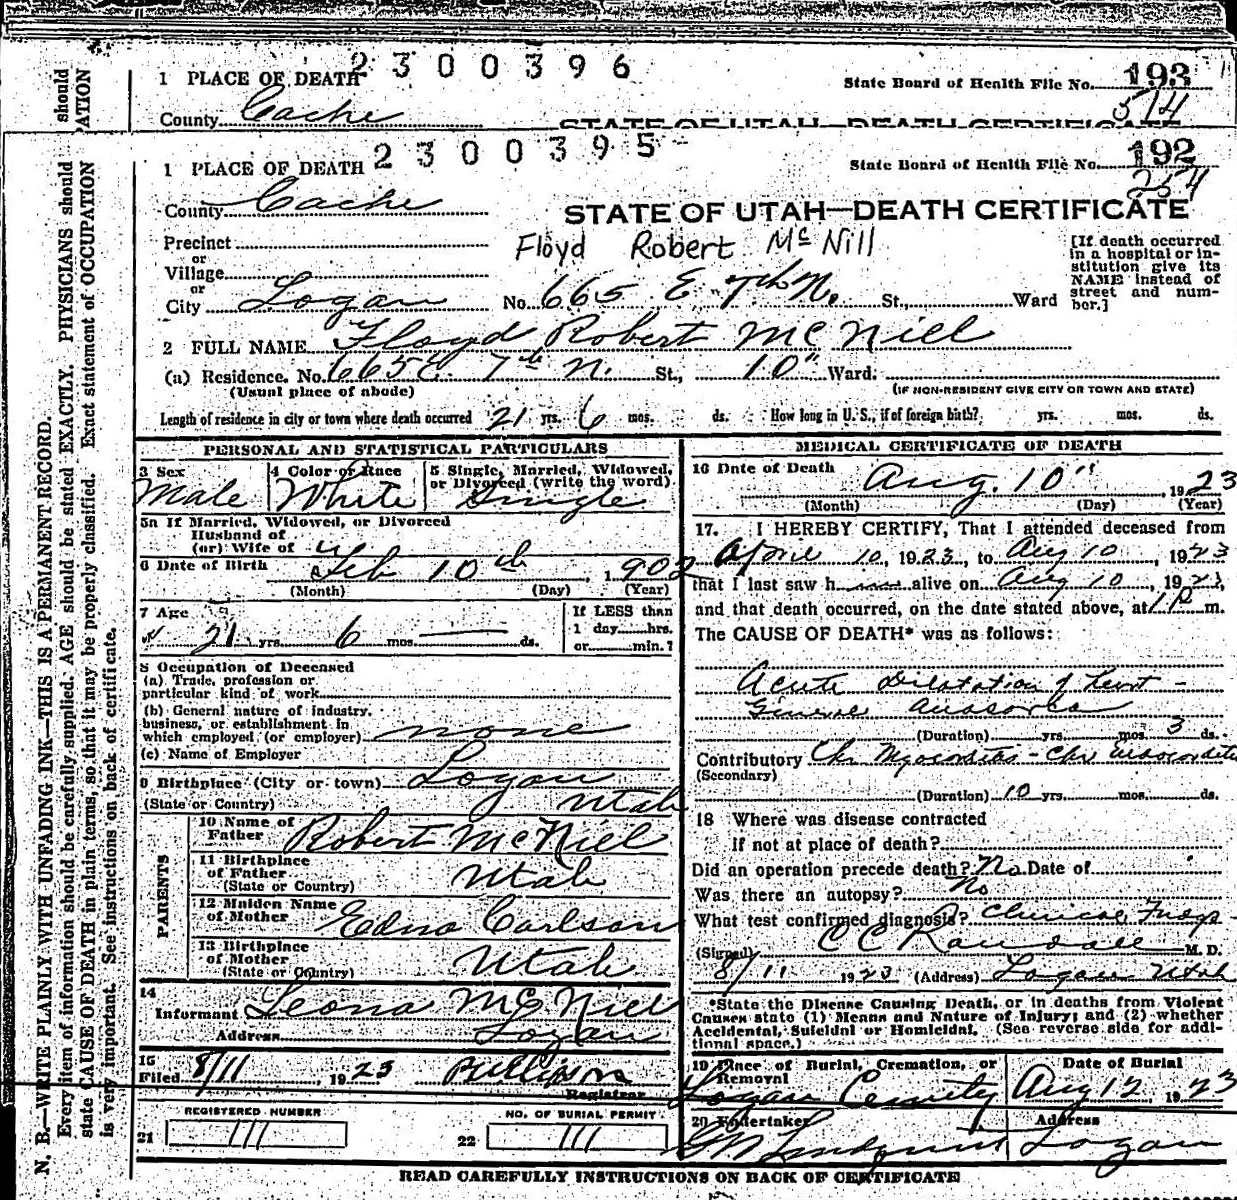 1 PLACE OF DEATH 2300396 State Board of Health File No. 193
514
County Cache STATE OF UTAH—DEATH CERTIFICATE
1 PLACE OF DEATH 2300395 State Board of Health File No. 192
254
County Cache STATE OF UTAH—DEATH CERTIFICATE
Precinct Floyd Robert McNill [If death occurred
in a hospital or in-
stitution give its
NAME instead of
street and num-
ber.]
or
Village
or
City Logan No. 665 E 7th N. St, Ward
2 FULL NAME Floyd Robert McNiell
(a) Residence. No. 665 E. 7th N. St., 10" Ward.
(Usual place of abode) (IF NON-RESIDENT GIVE CITY OR TOWN AND STATE)
Length of residence in city or town where death occurred 21 yrs. 6 mos. ds. How long in U. S., if of foreign birth? yrs. mos. ds.
PERSONAL AND STATISTICAL PARTICULARS
3 Sex 4 Color or Race 5 Single, Married, Widowed,
or Divorced (write the word)
Male White Single
5a If Married, Widowed, or Divorced
Husband of
(or) Wife of
6 Date of Birth Feb 10th 1902
(Month) (Day) (Year)
7 Age 21 yrs. 6 mos. — ds. If LESS than
1 day hrs.
or min.?
8 Occupation of Deceased
(a) Trade, profession or
particular kind of work
(b) General nature of industry,
business, or establishment in
which employed (or employer) none
(c) Name of Employer
9 Birthplace (City or town) Logan
(State or Country) Utah
PARENTS
10 Name of
Father Robert McNiel
11 Birthplace
of Father
(State or Country) Utah
12 Maiden Name
of Mother Edna Carlson
13 Birthplace
of Mother
(State or Country) Utah
14
Informant Leona McNiell
Address Logan
15
Filed 8/11, 1923
Registrar
REGISTERED NUMBER NO. OF BURIAL PERMIT
21 111 22 111
MEDICAL CERTIFICATE OF DEATH
16 Date of Death Aug. 10", 1923
(Month) (Day) (Year)
17. I HEREBY CERTIFY, That I attended deceased from
10, 1923, to Aug 10, 1923
that I last saw h alive on Aug 10, 1923,
and that death occurred, on the date stated above, at 1 P m.
The CAUSE OF DEATH* was as follows:
Acute Dilatation of heart -
General Anasarca
(Duration) yrs. mos. 3 ds.
Contributory Chr Myocarditis - Chr Endocarditis
(Secondary)
(Duration) 10 yrs. mos. ds.
18 Where was disease contracted
if not at place of death?
Did an operation precede death? No Date of
Was there an autopsy? No
What test confirmed diagnosis? Clinical
(Signed) C C Randall M. D.
8/11 1923 (Address) Logan Utah
*State the Disease Causing Death, or in deaths from Violent
Causes state (1) Means and Nature of Injury; and (2) whether
Accidental, Suicidal or Homicidal. (See reverse side for addi-
tional space.)
19 Place of Burial, Cremation, or
Removal Date of Burial
Logan Aug 12, 1923
20 Undertaker Address
Logan
READ CAREFULLY INSTRUCTIONS ON BACK OF CERTIFICATE
should
PATION
N. B.—WRITE PLAINLY WITH UNFADING INK—THIS IS A PERMANENT RECORD.
Every item of information should be carefully supplied. AGE should be stated EXACTLY. PHYSICIANS should
state CAUSE OF DEATH in plain terms, so that it may be properly classified. Exact statement of OCCUPATION
is very important. See instructions on back of certificate.